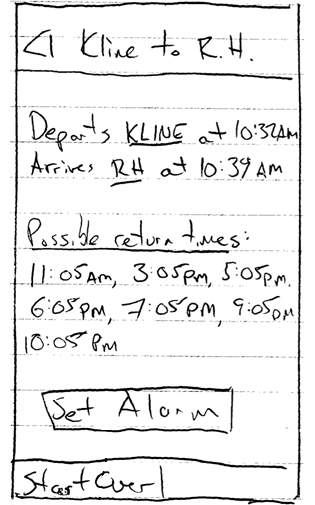 < Kline to R.H.
Departs KLINE at 10:32AM
Arrives RH at 10:39AM
Possible return times:
11:05AM, 3:05PM, 5:05PM.
6:05PM, 7:05PM, 9:05PM
10:05 PM
Set Alarm
Start Over